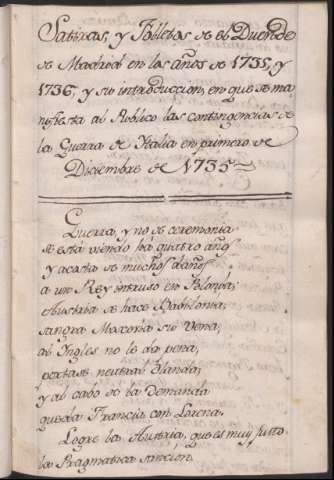 Satiras, y Folletos de el Duende
de Madrid en los años de 1735, y
1736, y su introduccion, en que se ma
nifiesta al Publico las contingencias de
la Guerra de Italia en primero de
Diciembre de 1735
Guerra, y no de ceremonia
se está viendo ha quatro años
y acosta de muchos daños
a un Rey intruso en Polonia;
Austria se hace Babilonia,
sangra Maxoria su vena,
al Ingles no le da pena,
portase neutral Olanda,
y al cabo de la Demanda
queda Francia con Lorena.
Logre la Austria, que es muy justo
la Pragmatica sancion.